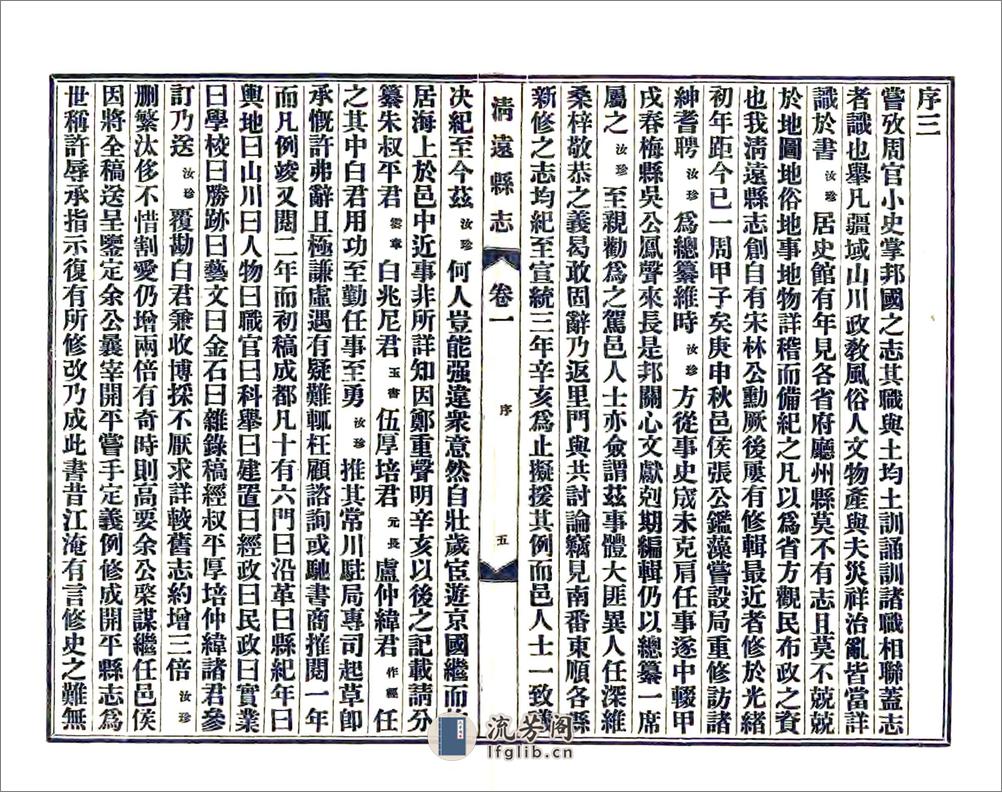 序三
嘗攷周官小史掌邦國之志其職與土均土訓誦訓諸職相聯蓋志
者識也舉凡疆域山川政敎風俗人文物產與夫災祥治亂皆當詳
識於書汝珍居史館有年見各省府廳州縣莫不有志且莫不兢兢
於地圖地俗地事地物詳稽而備紀之凡以爲省方觀民布政之資
也我淸遠縣志創自有宋林公勳厥後屢有修輯最近者修於光緒
初年距今已一周甲子矣庚申秋邑侯張公鑑藻嘗設局重修訪諸
紳耆聘汝珍爲總纂維時汝珍方從事史宬未克肩任事遂中輟甲
戌春梅縣吳公鳳聲來長是邦關心文獻剋期編輯仍以總纂一席
屬之汝珍至親勸爲之駕邑人士亦僉謂茲事體大匪異人任深維
桑梓敬恭之義曷敢固辭乃返里門與共討論竊見南番東順各縣
新修之志均紀至宣統三年辛亥爲止擬援其例而邑人士一致
淸遠縣志
卷一
序
五
決紀至今茲汝珍何人豈能强違衆意然自壯歲宦遊京國繼而
居海上於邑中近事非所詳知因鄭重聲明辛亥以後之記載請分
纂朱叔平君雲章白兆尼君玉書伍厚培君元長盧仲緯君作經任
之其中白君用功至勤任事至勇汝珍推其常川駐局專司起草卽
承慨許弗辭且極謙虛遇有疑難輒枉顧諮詢或馳書商推閱一年
而凡例竣又閱二年而初稿成都凡十有六門曰沿革曰縣紀年曰
輿地曰山川曰人物曰職官曰科舉曰建置曰經政曰民政曰實業
曰學校曰勝跡曰藝文曰金石曰雜錄稿經叔平厚培仲緯諸君參
訂乃送汝珍覆勘白君兼收博採不厭求詳較舊志約增三倍汝珍
删繁汰侈不惜割愛仍增兩倍有奇時則高要余公棨謀繼任邑侯
因將全稿送呈鑒定余公曩宰開平嘗手定義例修成開平縣志爲
世稱許辱承指示復有所修改乃成此書昔江淹有言修史之難無
流芳阁
lfglib.cn